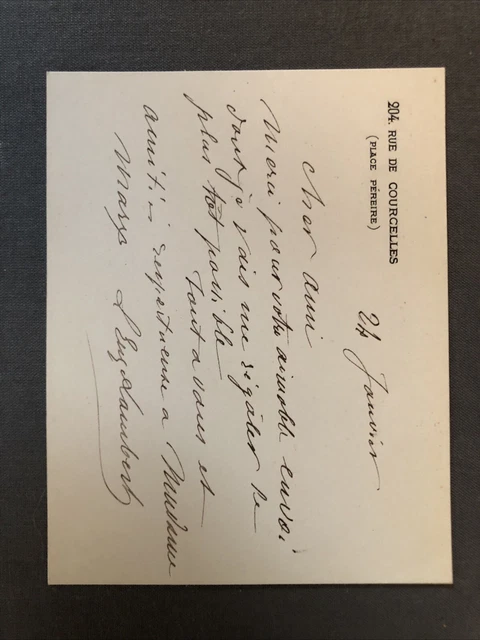 204. RUE DE COURCELLES
(PLACE PÉREIRE)
24 Janvier
Cher ami
Merci pour votre aimable envoi
dont je vais me régaler le
plus tôt possible
Tout a vous et
amitiés respectueuse a Madame
L Eug Lambert